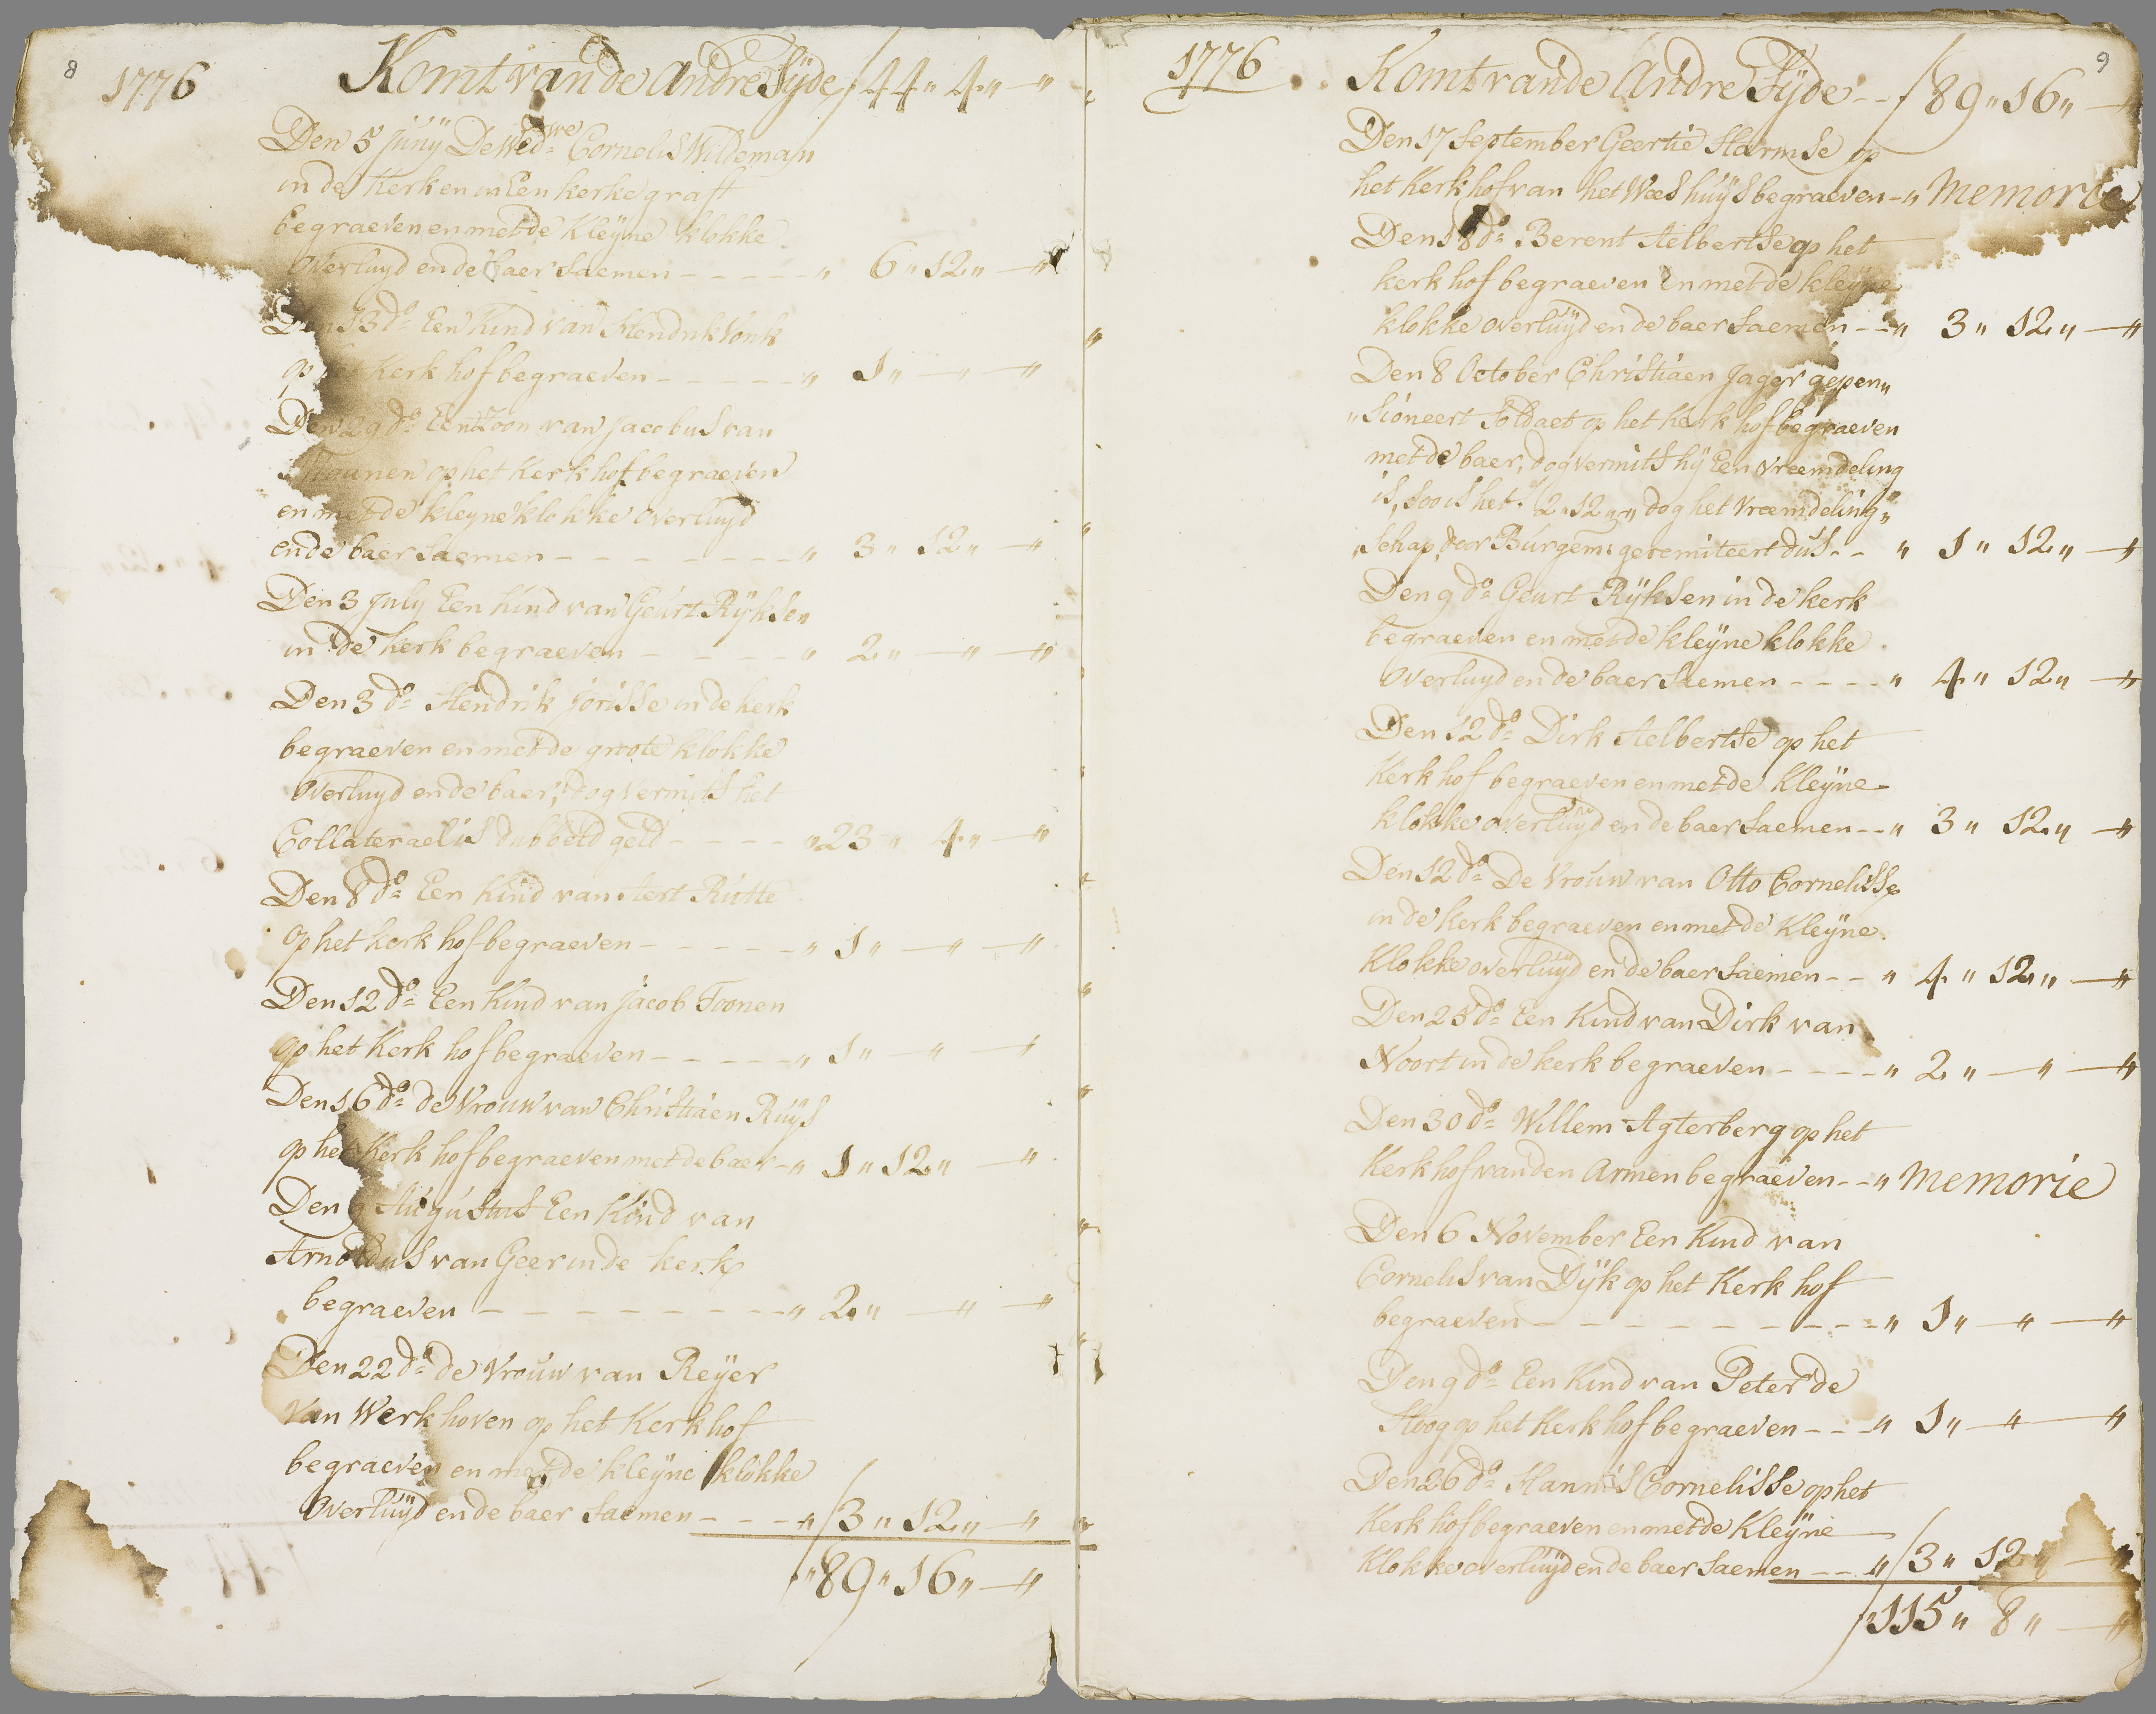 8
1776 Komt van de andre Syde ƒ 44 " 4 " — "
Den 5 Juny De Wed:we Cornelis Wildeman
in de Kerk en in Een kerke graft
begraeven en met de Kleyne klokke
overluyd en de baer saemen - - - - - " 6 " 12 " — "
Den 13 do: Een Kind van Hendrik Vonk
op Kerk hof begraeven - - - - - " 1 " — " — "
Den 29 do: Een Zoon van Jacobus van
op het Kerk hof begraeven
en met de kleyne klokke overluyd
en de baer saemen - - - - - - - " 3 " 12 " — "
Den 3 July Een Kind van Geurt Ryksen
in de kerk begraeven - - - - " 2 " — " — "
Den 3 do: Hendrik Jorisse in de kerk
begraeven en met de groote klokke
overluyd en de baer, dog vermits het
Collateraal is dubbeld geld - - - - " 23 " 4 " — "
Den 8 do: Een Kind van Aert Rutte
op het kerk hof begraeven - - - - - " 1 " — " — "
Den 12 do: Een Kind van Jacob Toonen
op het Kerk hof begraeven - - - - - " 1 " — " — "
Den 16 do: de Vrouw van Christiaen Ruys
op het Kerk hof begraeven met de baer - " 1 " 12 " — "
Den 9 Augustus Een Kind van
Arnoldus van Geer in de kerk
begraeven - - - - - - - - " 2 " — " — "
Den 22 do: de Vrouw van Reyer
van Werkhoven op het Kerk hof
begraeven en met de kleyne klokke
overluyd en de baer saemen - - - " ƒ 3 " 12 " — "
ƒ " 89 " 16 " — "
9
1776 Komt van de Andre Syde - - ƒ 89 " 16 " —
Den 17 September Geertie Harmse op
het Kerk hof van het Wees huys begraeven - " Memorie
Den 18 do: Berent Aelbertse op het
kerk hof begraeven en met de kleyne
klokke overluyd en de baer saemen - - " 3 " 12 " — "
Den 8 October Christiaen Jager gepen„
„sioneert Soldaet op het Kerk hof begraeven
met de baer, dog vermits hy Een vreemdeling
is, soo is het ƒ 2 " 12 " — " dog het Vreemdeling„
„schap door Burgem: geremiteert dus - - " 1 " 12 " — "
Den 9 do: Geurt Ryksen in de kerk
begraeven en met de kleyne klokke
overluyd en de baer saemen - - - - " 4 " 12 " — "
Den 12 do: Dirk Aelbertse op het
Kerk hof begraeven en met de Kleyne
klokke overluyd en de baer saemen - - " 3 " 12 " — "
Den 12 do: De Vrouw van Otto Cornelisse
in de kerk begraeven en met de Kleyne
Klokke overluyd en de baer saemen - - " 4 " 12 " — "
Den 28 do: Een Kind van Dirk van
Noort in de kerk begraeven - - - - " 2 " — " — "
Den 30 do: Willem Agterberg op het
Kerk hof van den Armen begraeven - - " Memorie
Den 6 November Een Kind van
Cornelis van Dyk op het Kerk hof
begraeven - - - - - - - - - " 1 " — " — "
Den 9 do: Een Kind van Peter de
Hoog op het Kerk hof begraeven - - - " 1 " — " — "
Den 26 do: Hannis Cornelisse op het
Kerk hof begraeven en met de Kleyne
Klokke overluyd en de baer saemen - - " ƒ 3 " 12 " — "
ƒ " 115 " 8 " — "